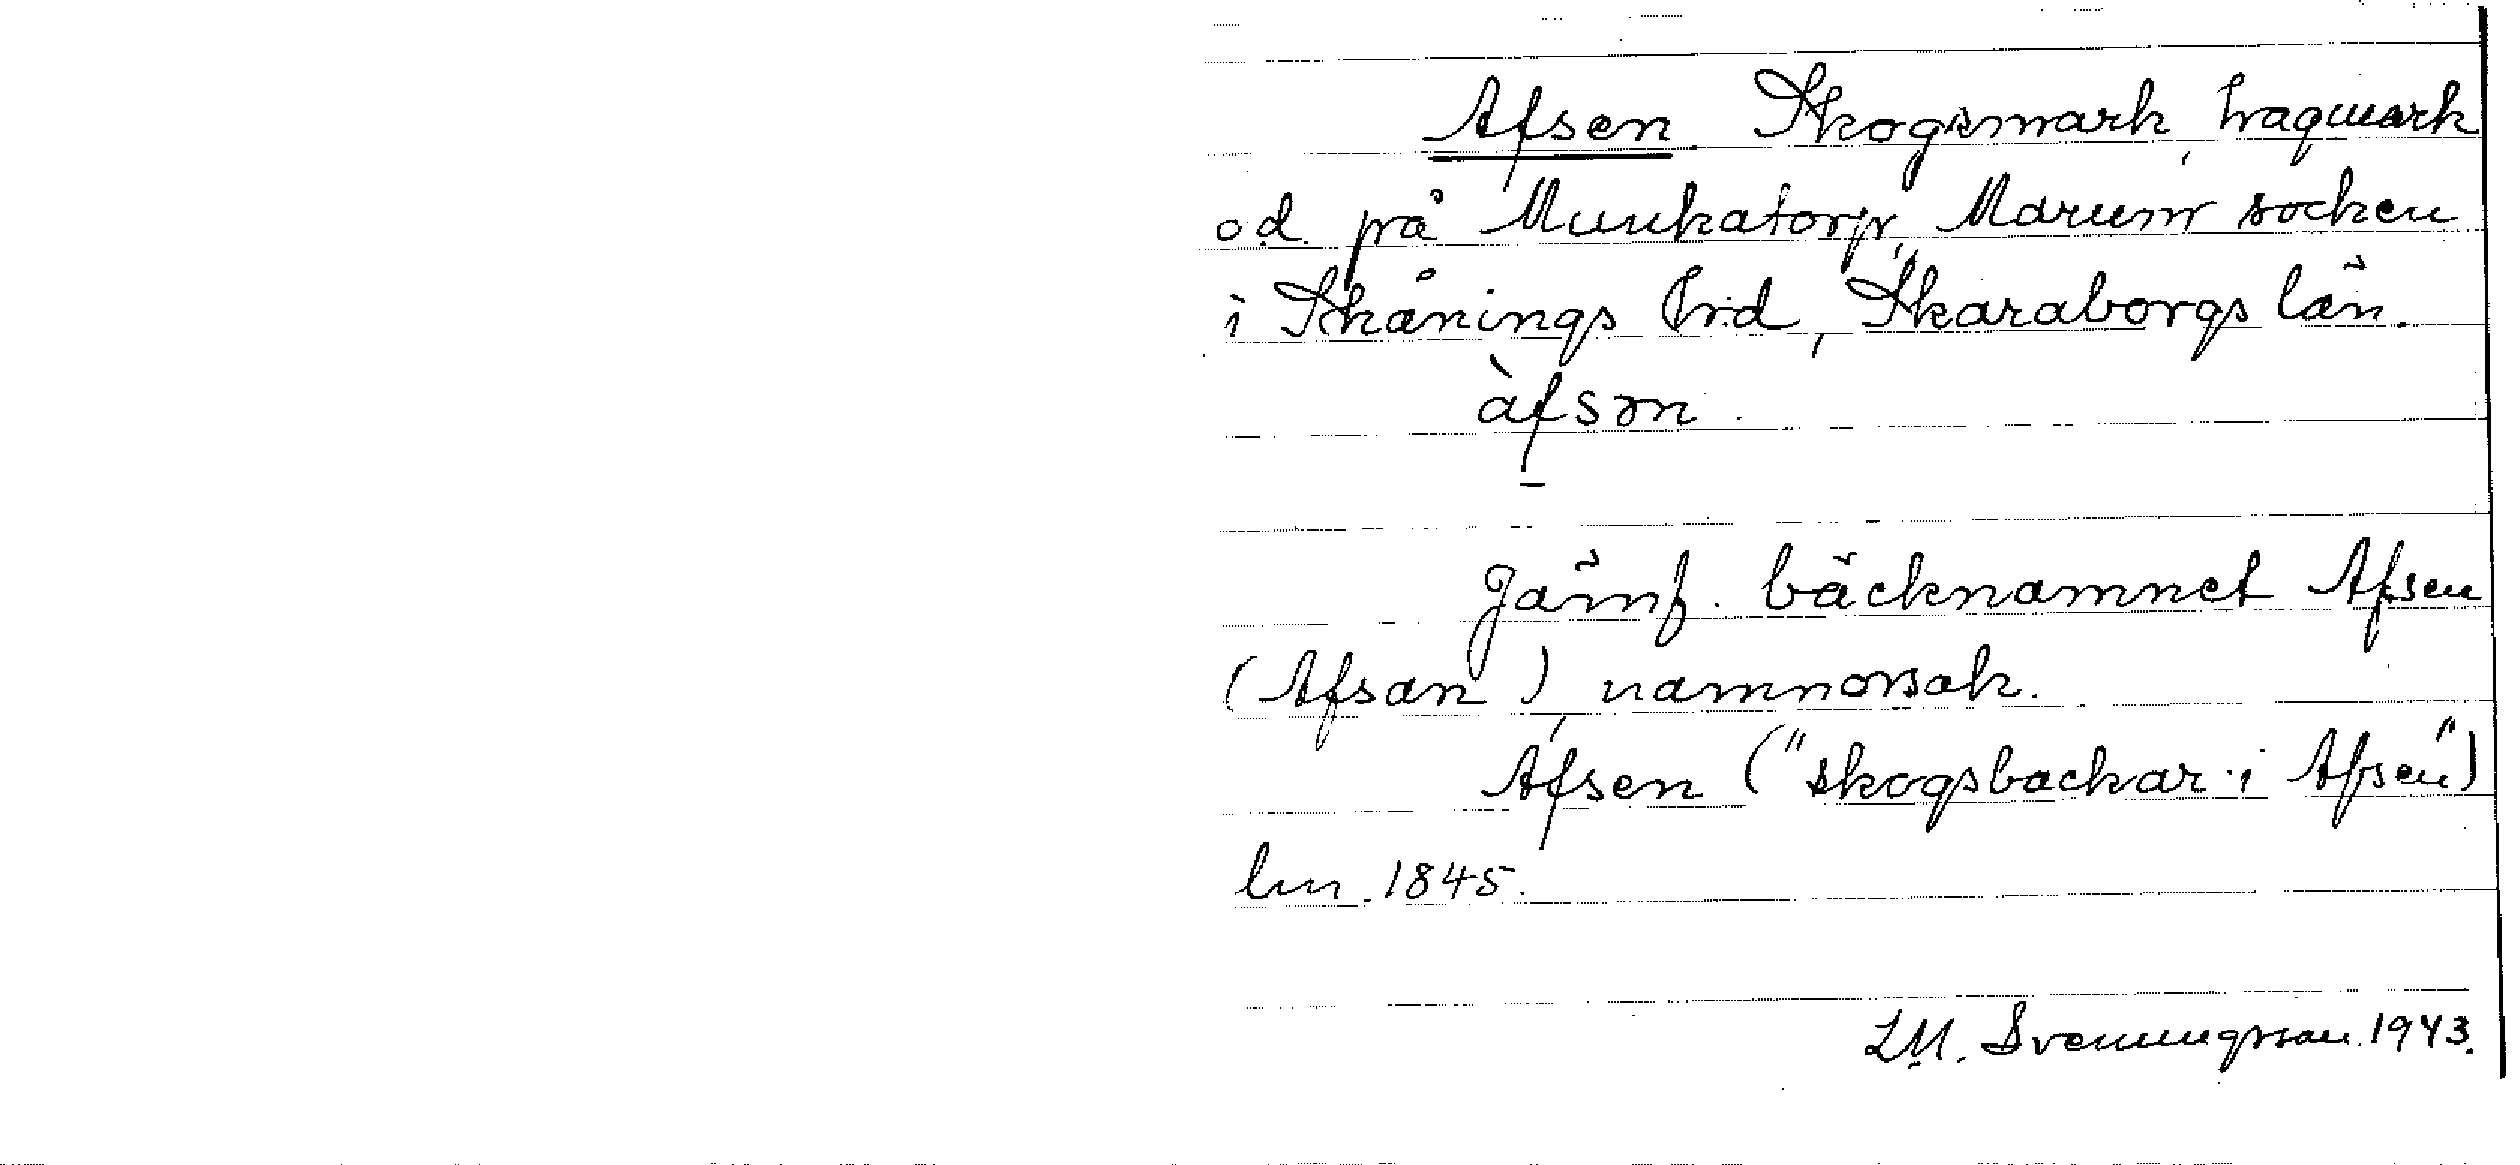 Afsen Skogsmark, hagmark
o.d. på Munkatorp, Marum socken
i Skånings hd, Skaraborgs län.
àfsən.
Jämf. bäcknamnet Afsen
(Afsan), namnorsak.
Afsen ("skogsbackar i Afsen")
lm. 1845.
L.M. Svenungsson 1943.